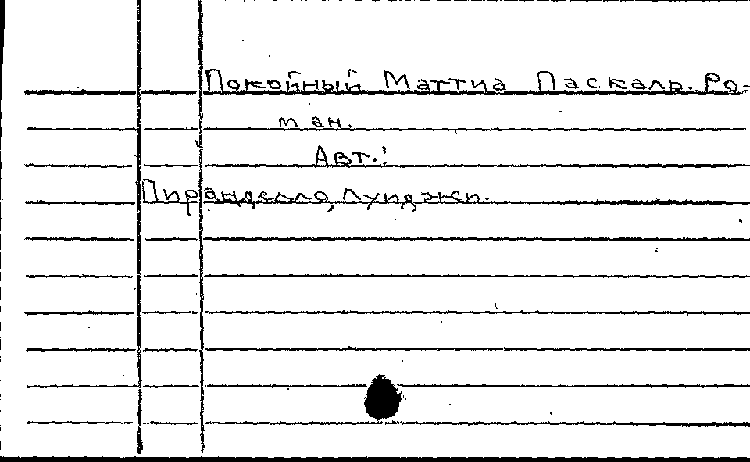 Покойный Маттиа Паскаль. Ро-
ман.
Авт.:
Пиранделло, Луиджи.